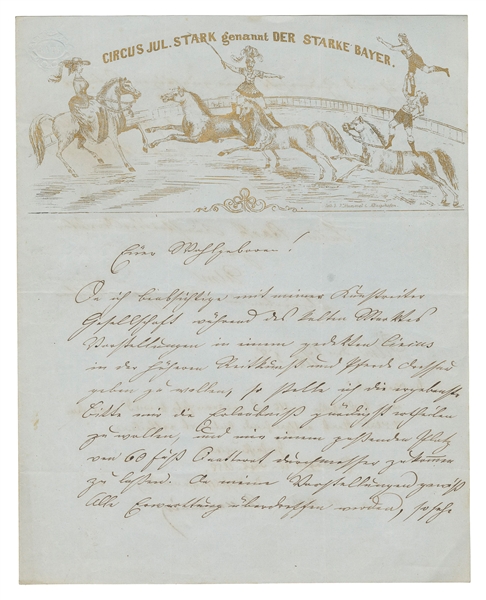 CIRCUS JUL. STARK genannt DER STARKE BAYER.
Euer Wohlgeboren!
Da ich beabsichtige mit meiner Kunstreiter
Gesellschaft während des kalten Marktes
Vorstellungen in einem gedekten Circus
in der höheren Reitkunst und Pferde dressur
geben zu wollen, so stelle ich die ergebenste
Bitte mir die Erlaubniß gnädigst ertheilen
zu wollen, und mir einem paßenden Platz
von 60 Fuß Quatrat durchmesser zu kommen
zu laßen. Da meine Vorstellungen gewiß
Alle Erwarttung übertreffen werden, so sehe